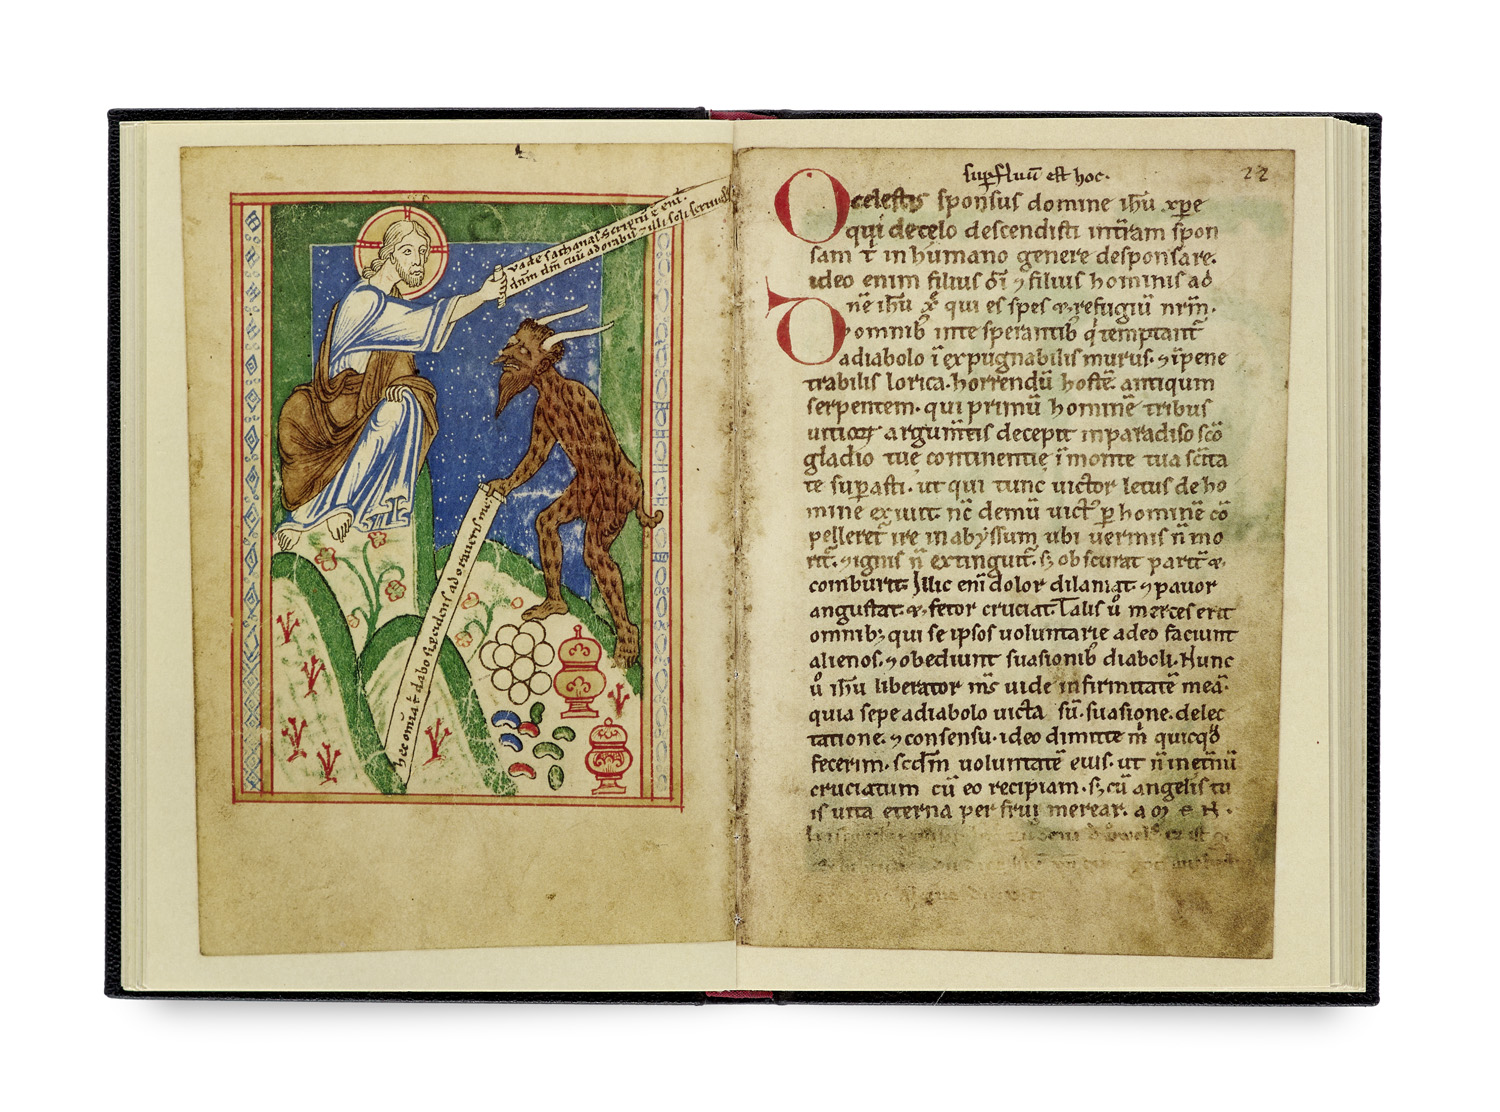 vade sathanas scriptū ē eni.
dn̄m dm̄ tuū adorabis ⁊ illi soli servies
hec om̄ia t̄ dabo si p̄cidens adoraveris me
supfluū est hoc.
22
O celestis sponsus domine ih̄u xp̄e
qui de celo descendisti in t̄ram spon
sam t̄ in humano genere desponsare.
ideo enim filius dī ⁊ filius hominis ad
D ne ih̄u x̄ qui es spes &, refugiū nrm̄.
omnib; in te sperantib; q̄ temptant̄
a diabolo īexpugnabilis murus. ⁊ īpene
trabilis lorica. horrendū hostē. antiqum
serpentem. qui primū hominē tribus
argum̄tis decepit in paradiso scō
gladio tuę continentię ī monte tua scīta
te sup̄asti. ut qui tunc victor letus de ho
mine exivit. nc̄ demū vict᷒ p̱ hominē cō
pelleret̄ ire in abyssum. ubi vermis n̄ mo
rit̄. ⁊ ignis n̄ extinguit̄. s; obscurat parit̄ &,
comburit. Illic enī dolor dilaniat. ⁊ pavor
angustat. &, fetor cruciat. Talis ů merces erit
omnib; qui se ipsos voluntarie a deo faciunt
alienos. ⁊ obediunt suasionib; diaboli. Nunc
ů ih̄u liberator m̄s vide infirmitatē meā.
quia sepe a diabolo victa sū. suasione. delec
tatione. ⁊ consensu. ideo dimitte m̄ quicqd̄
fecerim. scd̄m voluntatē eius. ut n̄ inet̄nū
cruciatum cū eo recipiam. s; cū angelis tu
is vita eterna perfrui merear. amēN.